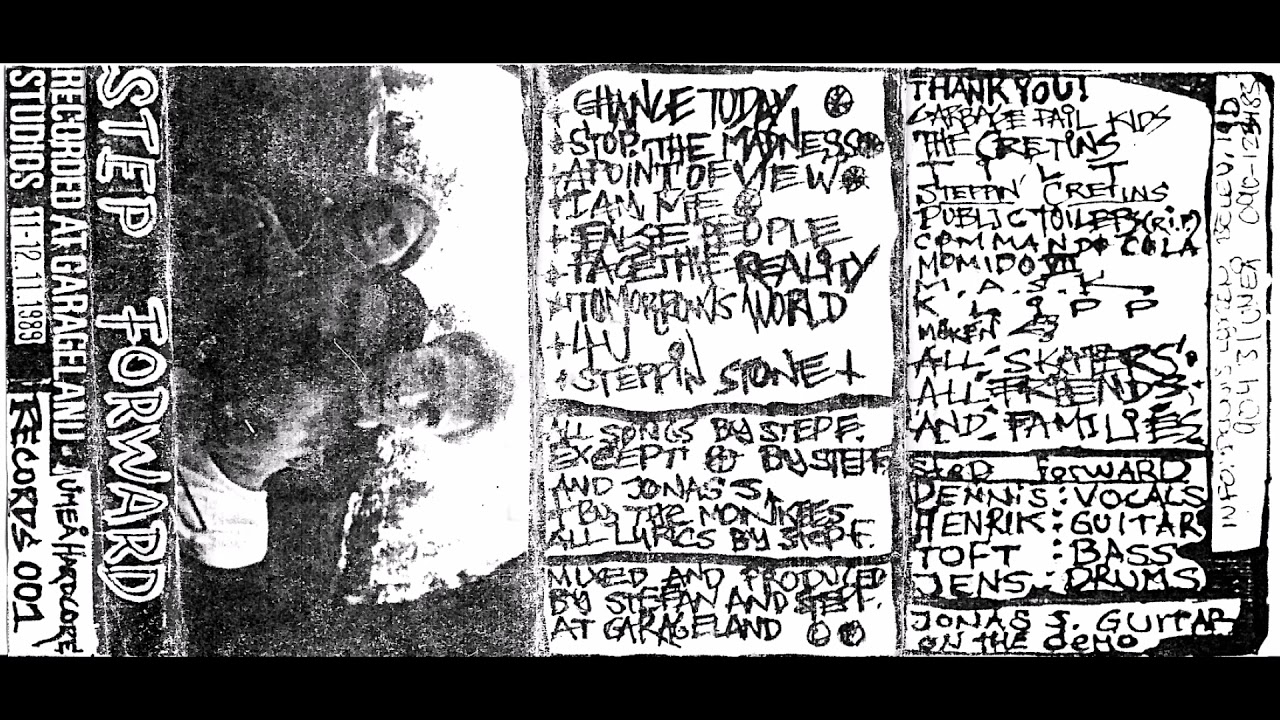 STEP FORWARD
RECORDED AT GARAGELAND · UMEÅ HARDCORE
STUDIOS 11-12.11.1989 RECORDS 001
CHANCE TODAY
STOP THE MADNESS
A POINT OF VIEW
I AM ME
FALSE PEOPLE
FACE THE REALITY
TOMORROWS WORLD
4U
STEPPIN STONE +
ALL SONGS BY STEP F.
EXCEPT BY STEPF
AND JONAS S,
+ BY THE MONKEES
ALL LYRICS BY STEP F.
MIXED AND PRODUCED
BY STEFAN AND STEP F.
AT GARAGELAND
THANK YOU!
GARBAGE PAIL KIDS
THE CRETINS
T I L T
STEPPIN' CRETINS
PUBLIC TOILETS (R.I.P)
COMMANDO COLA
MOMIDO VII
M.A.S.K
K L I P P
MÅKEN
ALL SKATERS
ALL FRIENDS
AND FAMILIES
STEP FORWARD
DENNIS: VOCALS
HENRIK: GUITAR
TOFT : BASS
JENS: DRUMS
JONAS S. GUITAR
ON THE DEMO
INFO: DENNIS
904 31 UMEÅ